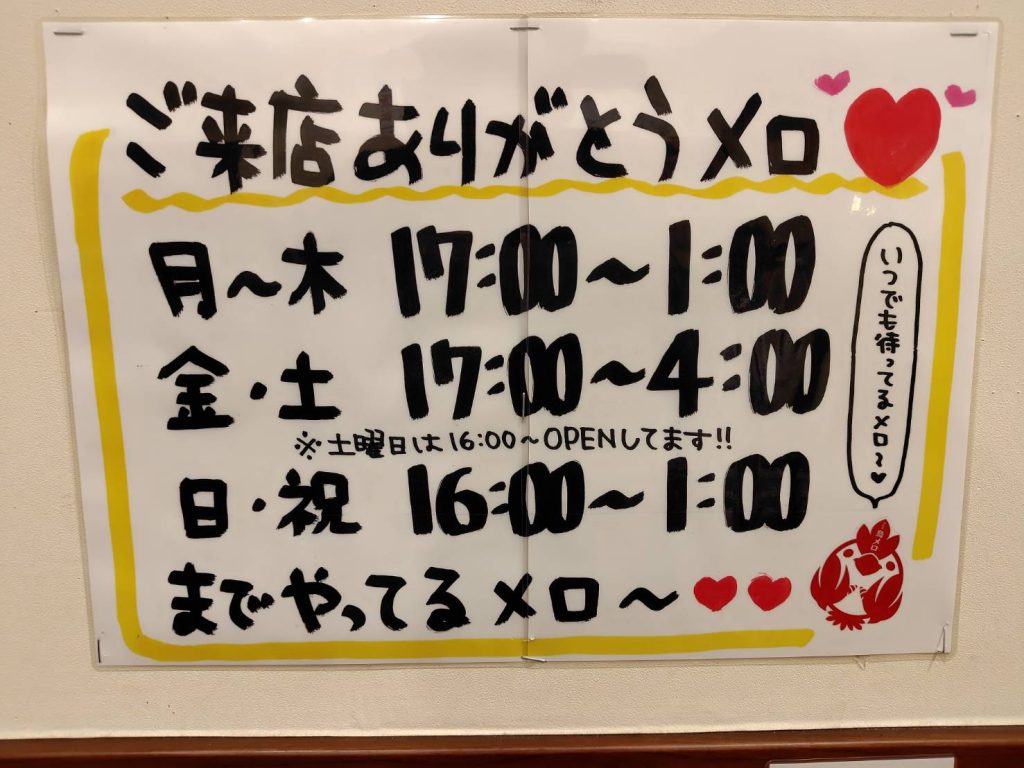 ご来店ありがとうメロ
月〜木 17:00〜1:00
金・土 17:00〜4:00
※土曜日は16:00〜OPENしてます!!
日・祝 16:00〜1:00
までやってるメロ〜
いつでも待ってるメロ〜
鳥メロ